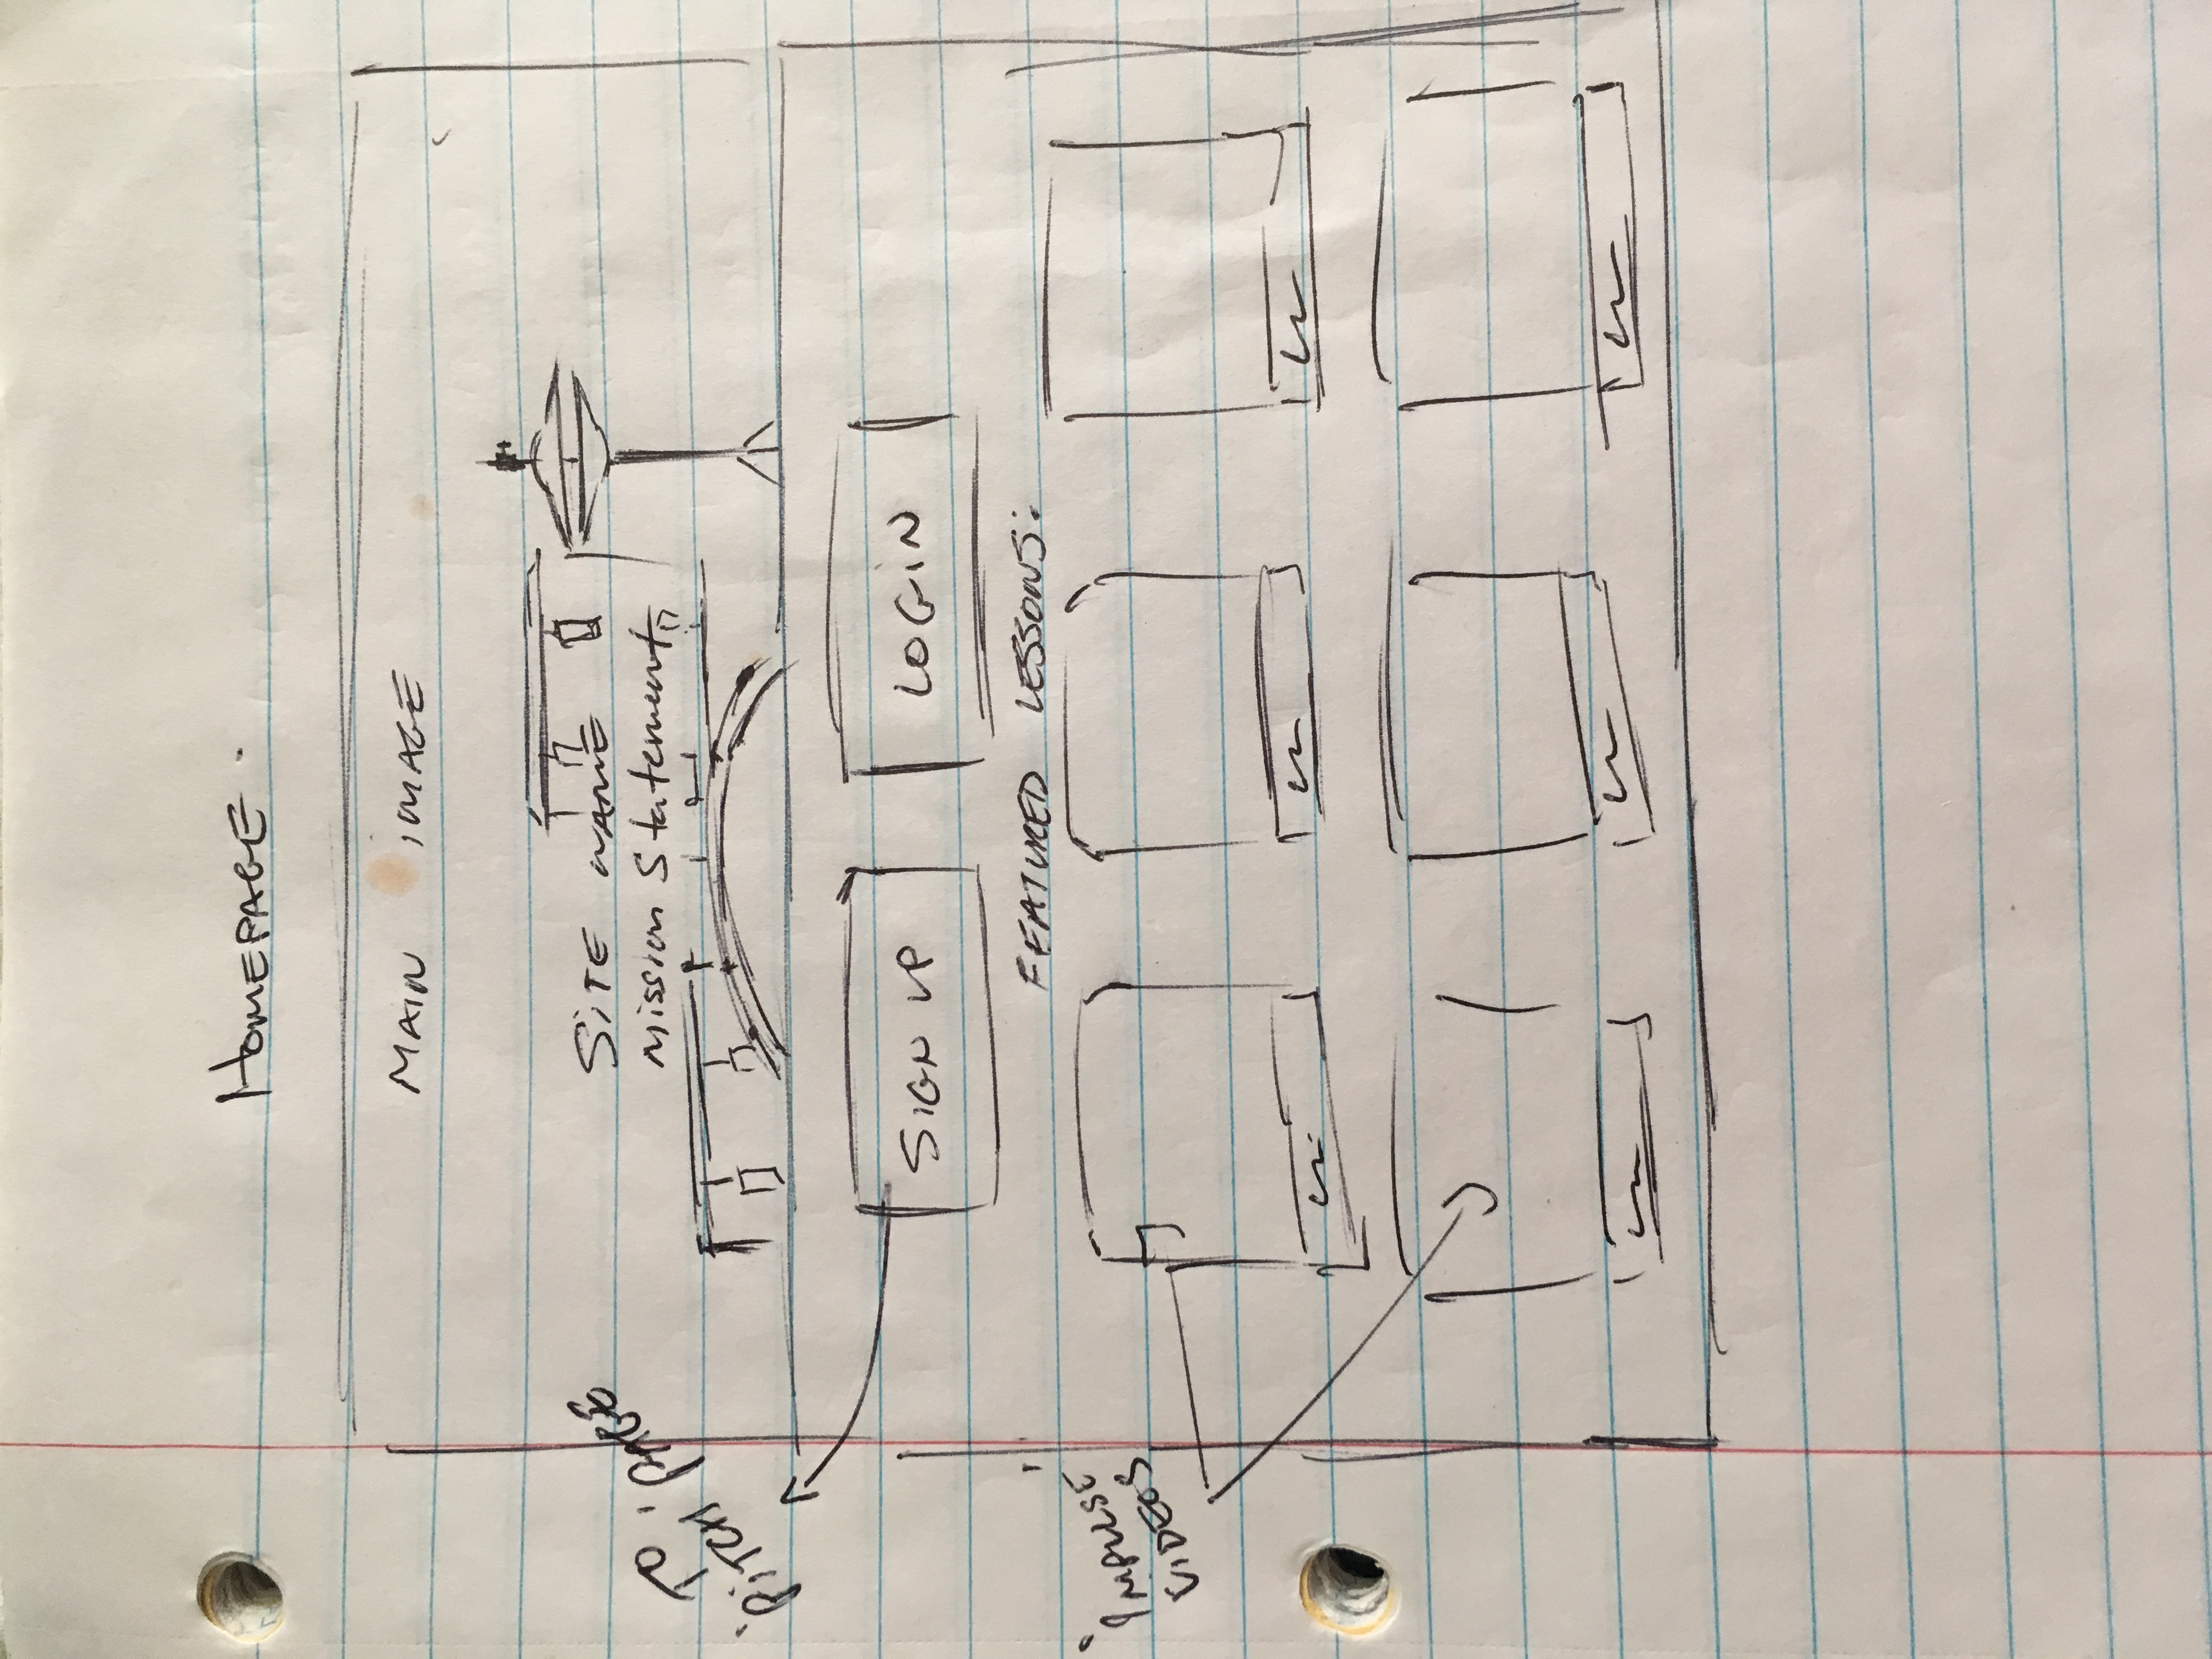 HOMEPAGE.
MAIN IMAGE
SITE NAME
Mission Statement
TO
'PITCH' PAGE
SIGN UP
LOGIN
FEATURED LESSONS:
'IMPULSE'
VIDEOS